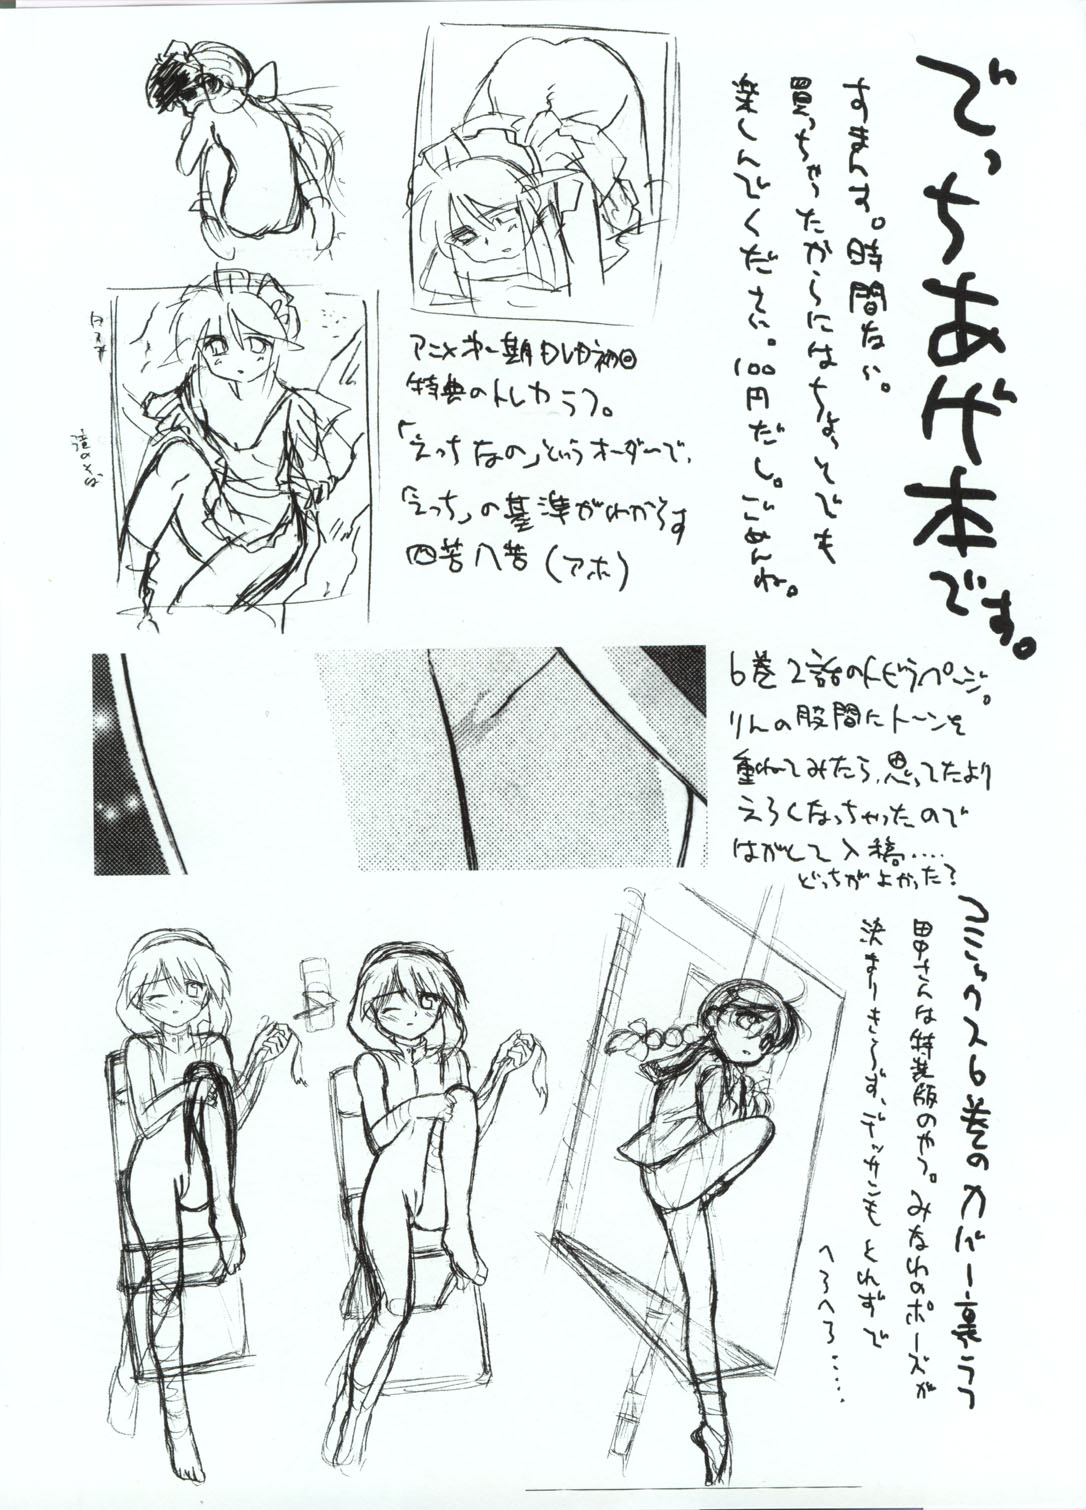 でっちあげ本です。
すまんす。時間ない。
買っちゃったからにはちょっとでも
楽しんでください。100円だし。ごめんね。
アニメ第一期もしも初回
特典のトレカラフ。
「えっちなの」というオーダーで、
「えっち」の基準がわからず
四苦八苦(アホ)
滝のそば
6巻2話のトビラページ。
りんの股間にトーンを
重ねてみたら、思ってたより
えろくなっちゃったので
はがして入稿....
どっちがよかった?
コミックス6巻のカバー裏ラフ
田中さんは特装版のやつ。みなわのポーズが
決まりきらず、デッサンもとれずで
へろへろ.....